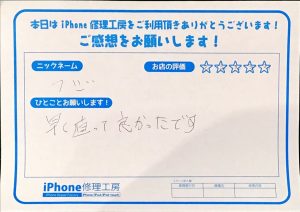 本日は iPhone 修理工房をご利用頂きありがとうございます！
ご感想をお願いします！
ニックネーム
お店の評価 ☆☆☆☆☆
ひとことお願いします！
早く直って良かったです
iPhone修理工房